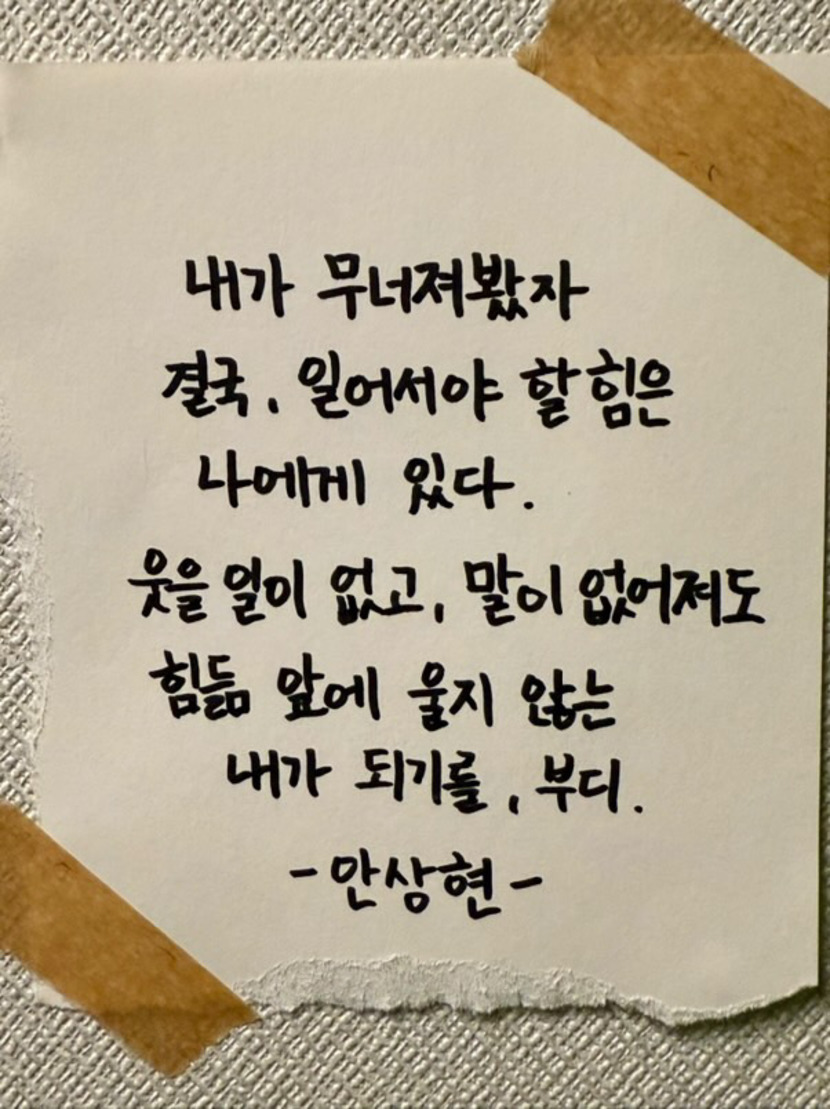 내가 무너져봤자
결국, 일어서야 할 힘은
나에게 있다.
웃을 일이 없고, 말이 없어져도
힘듦 앞에 울지 않는
내가 되기를, 부디.
-안상현-